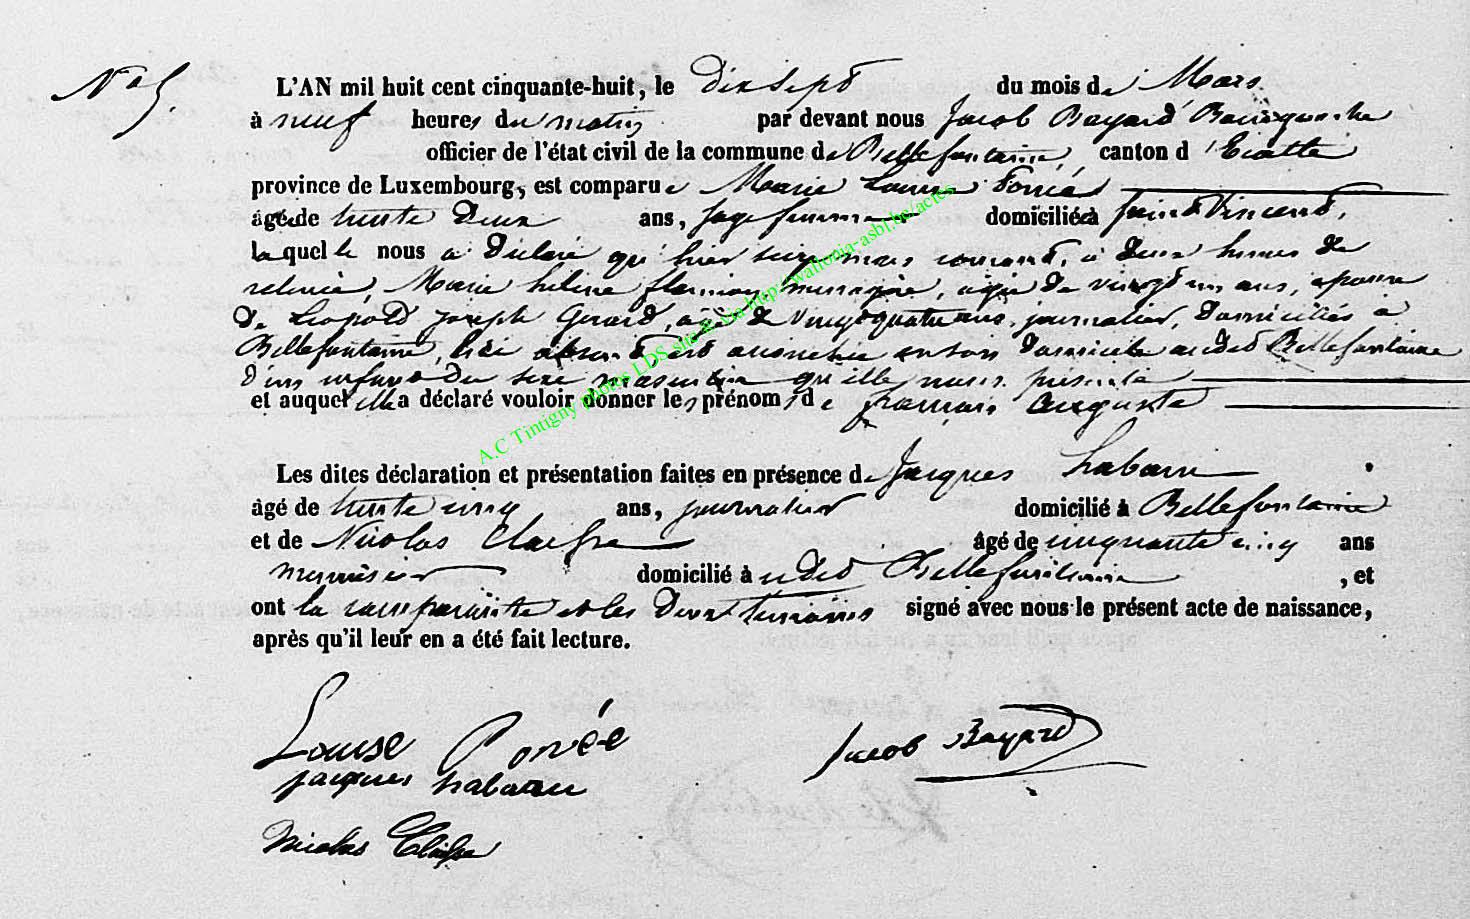 N° 5.
L'AN mil huit cent cinquante-huit, le dix sept du mois de Mars
à neuf heures du matin par devant nous Jacob Bayard Bourgmestre
officier de l'état civil de la commune de Bellefontaine, canton d'Etalle
province de Luxembourg, est comparue Marie Louise
âgée de trente deux ans, sage femme domiciliée à Saint Vincent,
laquelle nous a déclaré qu'hier seize mars courant, à deux heures de
relevée, Marie helene ménagère, agée de vingt un ans, epouse
de Leopold joseph Gerard, agé de vingt quatre ans, journalier, domiciliés à
Bellefontaine, ici absent, est accouchée en son domicile audit Bellefontaine
d'un enfant du sexe masculin qu'elle nous présente
et auquel elle a déclaré vouloir donner les prénoms de françois auguste
Les dites déclaration et présentation faites en présence de Jacques habaru
âgé de trente cinq ans, journalier domicilié à Bellefontaine
et de Nicolas Claisse âgé de cinquante cinq ans
menuisier domicilié à udit Bellefontaine, et
ont la comparante et les deux temoins signé avec nous le présent acte de naissance,
après qu'il leur en a été fait lecture.
Louise Jacob Bayard
jacques habaru
Nicolas Claisse
A.C Tintigny photos LDS site & via http://wallonia-asbl.be/actes